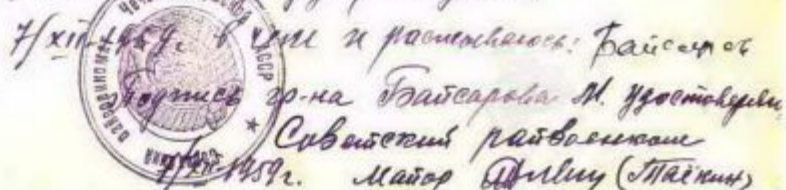 7/XII-1959г. в чем и расписываюсь: Байсаров
Подпись гр-на Байсарова М. удостоверяю
Советский райвоенком
7/XII-1959г. Майор (Тяёкин)